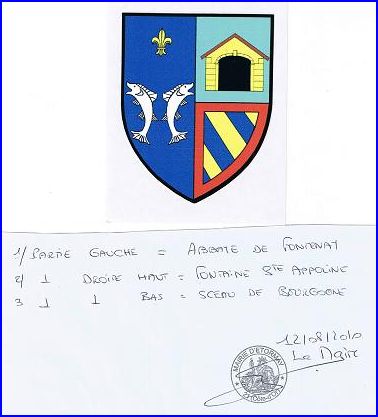 1/ PARTIE GAUCHE = ABBAYE DE FONTENAY
2/ 1 DROITE HAUT = FONTAINE STE APPOLINE
3 1 1 BAS = SCEAU DE BOURGOGNE
12/08/2010
Le Maire
MAIRIE D'ETORMAY